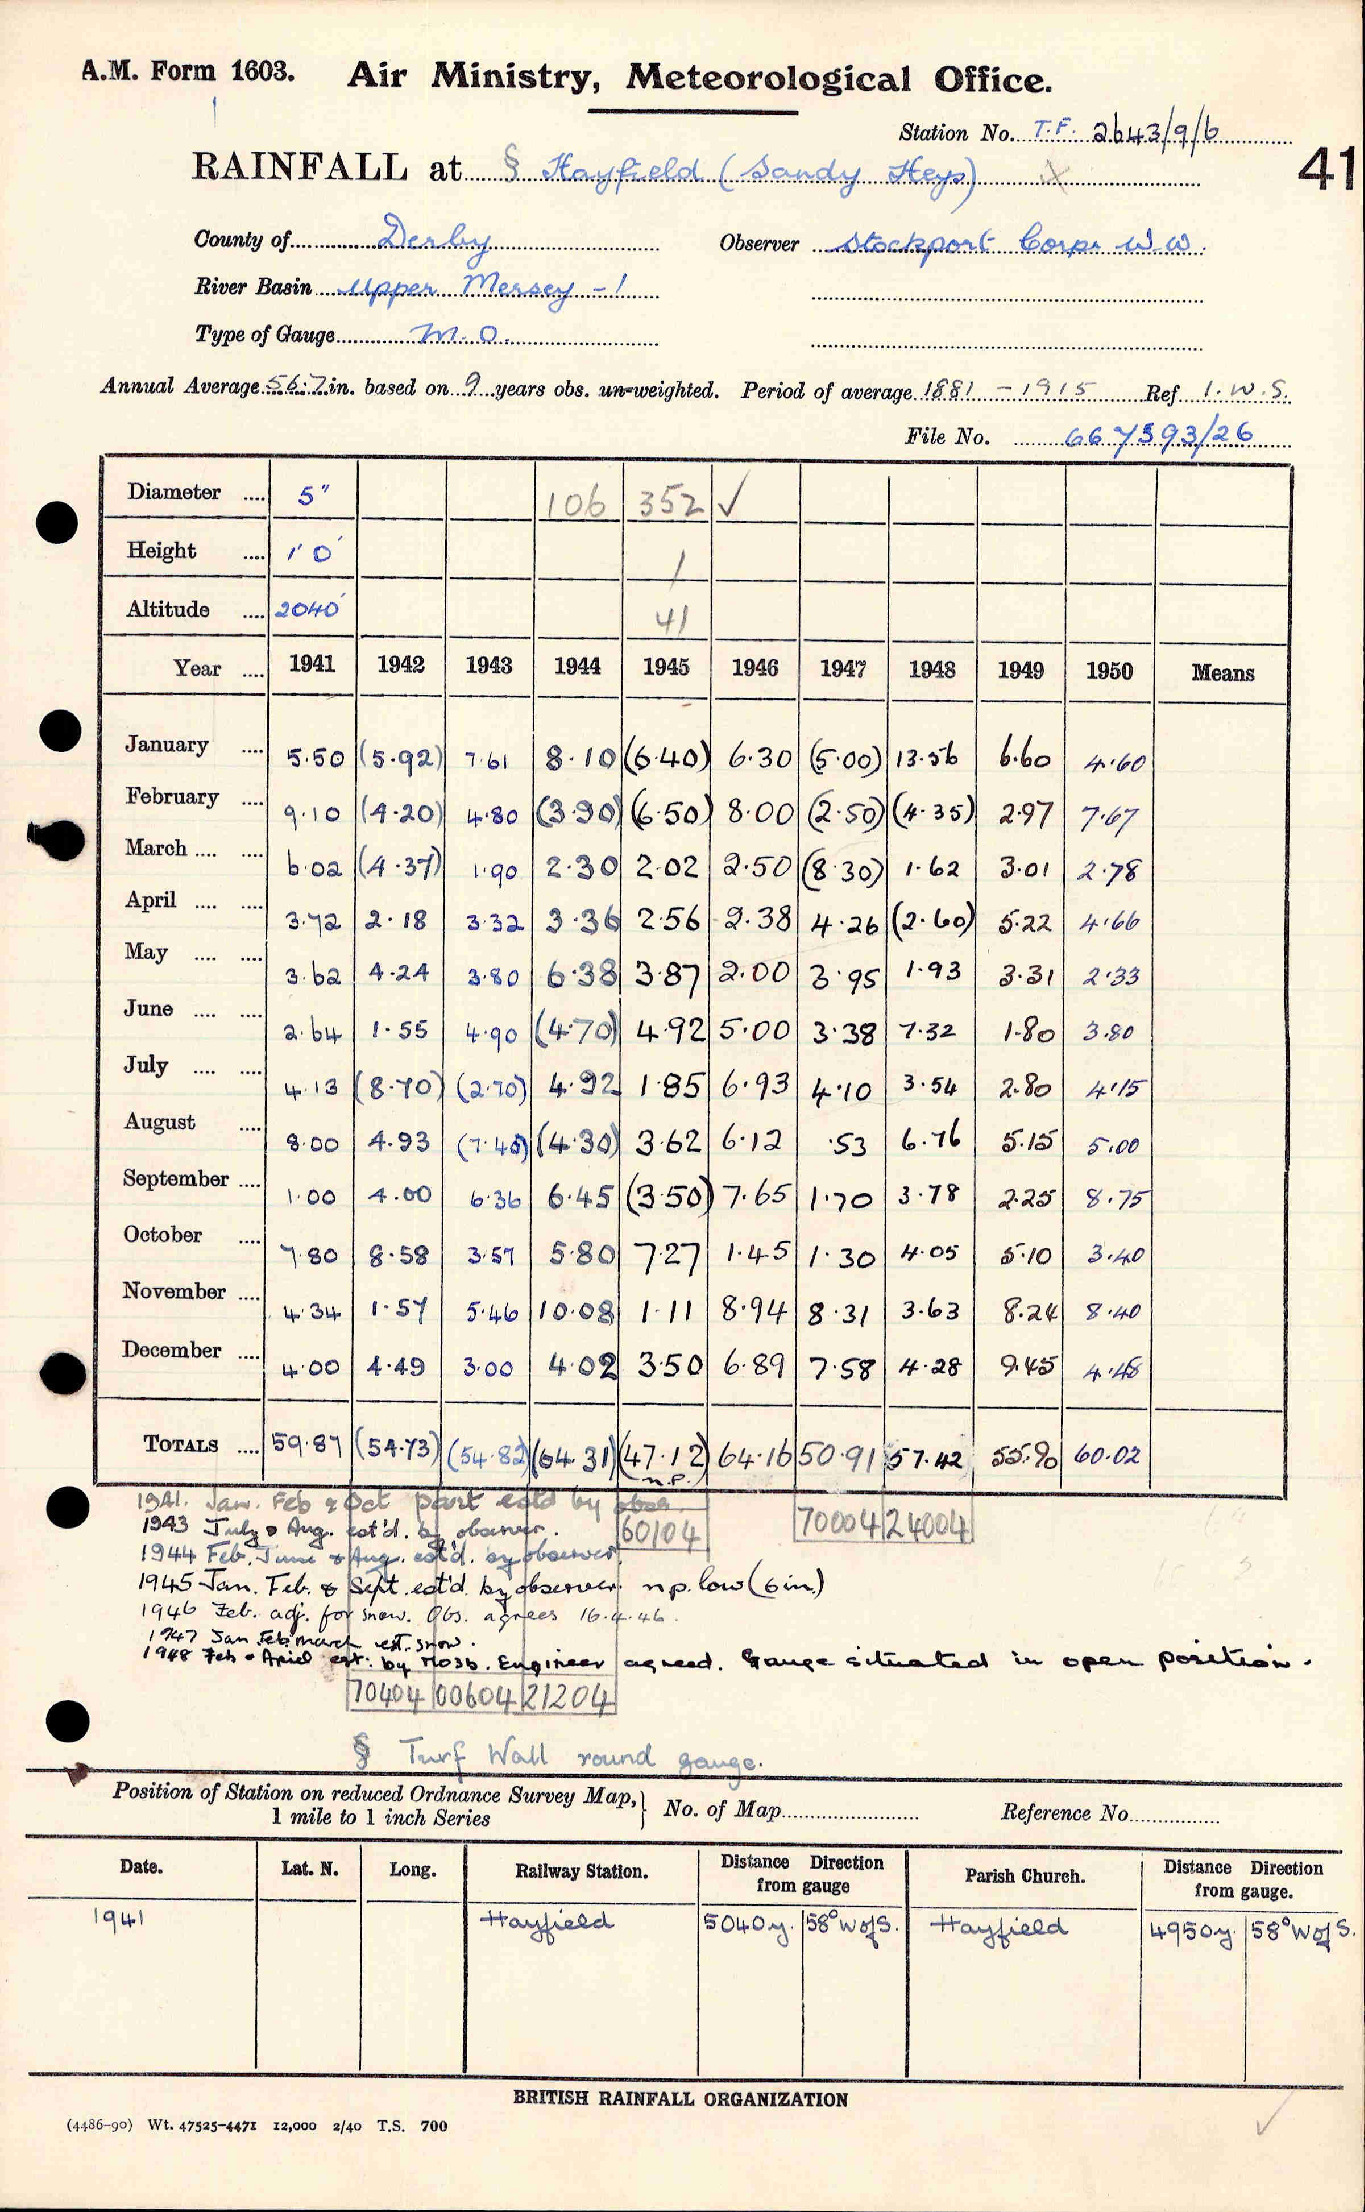 A.M. Form 1603. Air Ministry, Meteorological Office.
Station No. T.F. 2643/9/6
41
RAINFALL at § Hayfield (Sandy Heys)
County of Derby Observer Stockport Corpn W.W.
River Basin Upper Mersey - 1
Type of Gauge M.O.
Annual Average 56.7 in. based on 9 years obs. un-weighted. Period of average 1881 - 1915 Ref. I.W.S.
File No. 667593/26
Diameter .... 5" 106 352 ✓
Height .... 1' 0" 1
Altitude .... 2040' 41
Year .... 1941 1942 1943 1944 1945 1946 1947 1948 1949 1950 Means
January .... 5.50 (5.92) 7.61 8.10 (6.40) 6.30 (5.00) 13.56 6.60 4.60
February .... 9.10 (4.20) 4.80 (3.90) (6.50) 8.00 (2.50) (4.35) 2.97 7.67
March .... .... 6.02 (4.37) 1.90 2.30 2.02 2.50 (8.30) 1.62 3.01 2.78
April .... .... 3.72 2.18 3.32 3.36 2.56 2.38 4.26 (2.60) 5.22 4.66
May .... .... 3.62 4.24 3.80 6.38 3.87 2.00 3.95 1.93 3.31 2.33
June .... .... 2.64 1.55 4.90 (4.70) 4.92 5.00 3.38 7.32 1.80 3.80
July .... .... 4.13 (8.70) (2.70) 4.92 1.85 6.93 4.10 3.54 2.80 4.15
August .... 8.00 4.93 (7.40) (4.30) 3.62 6.12 .53 6.76 5.15 5.00
September .... 1.00 4.00 6.36 6.45 (3.50) 7.65 1.70 3.78 2.25 8.75
October .... 7.80 8.58 3.57 5.80 7.27 1.45 1.30 4.05 5.10 3.40
November .... 4.34 1.57 5.46 10.08 1.11 8.94 8.31 3.63 8.24 8.40
December .... 4.00 4.49 3.00 4.02 3.50 6.89 7.58 4.28 9.45 4.48
TOTALS .... 59.87 (54.73) (54.82) (64.31) (47.12) 64.16 50.91 57.42 55.90 60.02
n.p.
1941. Jan. Feb & Oct part estd by obsr.
1943 July & Aug. est'd. by observer. 60104 70004 24004
1944 Feb. June & Aug. est'd. by observer
1945 Jan. Feb. & Sept. est'd. by observer n.p. low (6 in.)
1946 Feb. adj. for snow. Obs. agrees 16.4.46.
1947 Jan Feb March est. snow.
1948 Feb & April est. by MO3b. Engineer agreed. Gauge situated in open position.
70404 00604 21204
§ Turf Wall round gauge.
Position of Station on reduced Ordnance Survey Map, 1 mile to 1 inch Series } No. of Map Reference No.
Date. Lat. N. Long. Railway Station. Distance Direction from gauge Parish Church. Distance Direction from gauge.
1941 Hayfield 5040y. 58° W of S. Hayfield 4950y. 58° W of S.
BRITISH RAINFALL ORGANIZATION
(4486-90) Wt. 47525-4471 12,000 2/40 T.S. 700